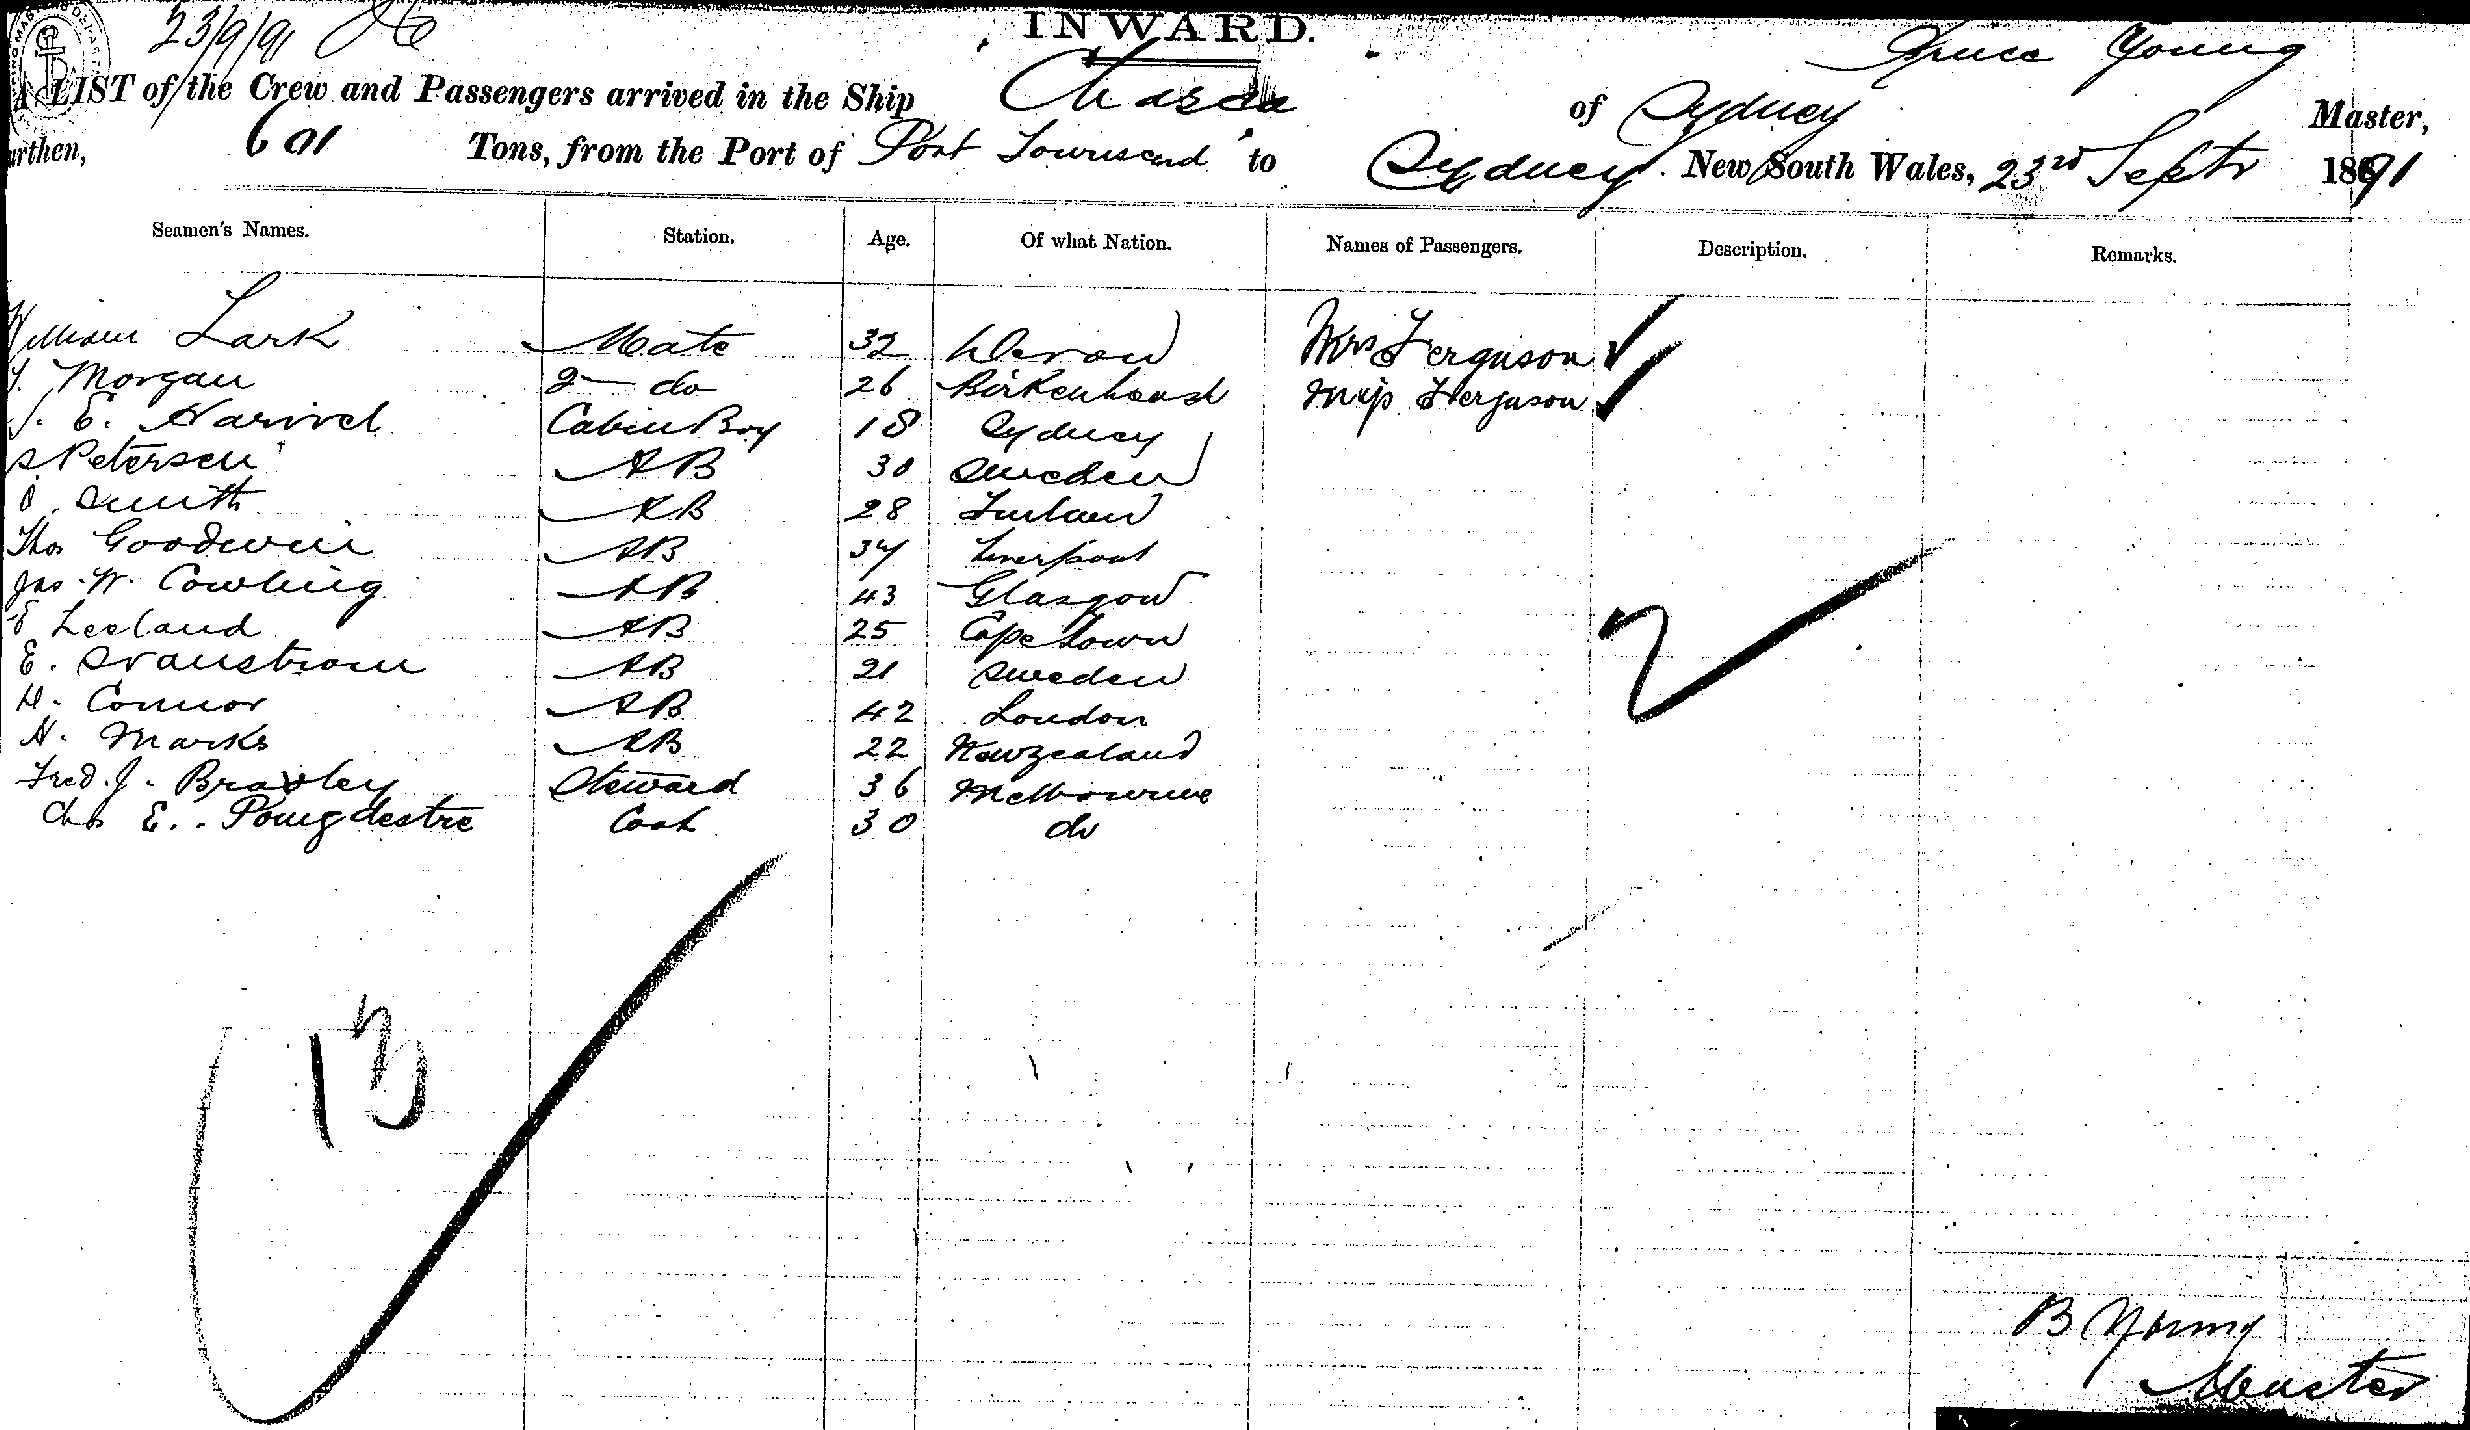 23/9/91
INWARD.
Bruce Young
LIST of the Crew and Passengers arrived in the Ship Chasca of Sydney Master,
urthen, 601 Tons, from the Port of Port Townsend to Sydney New South Wales, 23rd Septr 1891
Seamen's Names. Station. Age. Of what Nation. Names of Passengers. Description. Remarks.
William Lark Mate 32 Devon Mrs Ferguson
Morgan 2 do 26 Birkenhead Miss Ferguson
E. Harivel Cabin Boy 18 Sydney
Petersen AB 30 Sweden
Smith AB 28 Finland
Thos Goodwin AB 34 Liverpool
Jas. W. Cowling AB 43 Glasgow
E Leeland AB 25 Cape Town
E. Svanstrom AB 21 Sweden
D. Connor AB 42 London
H. Marks AB 22 New Zealand
Fred. J. Braxley Steward 36 Melbourne
Chs E. Poingdestre Cook 30 do
2
13
B Young
Master